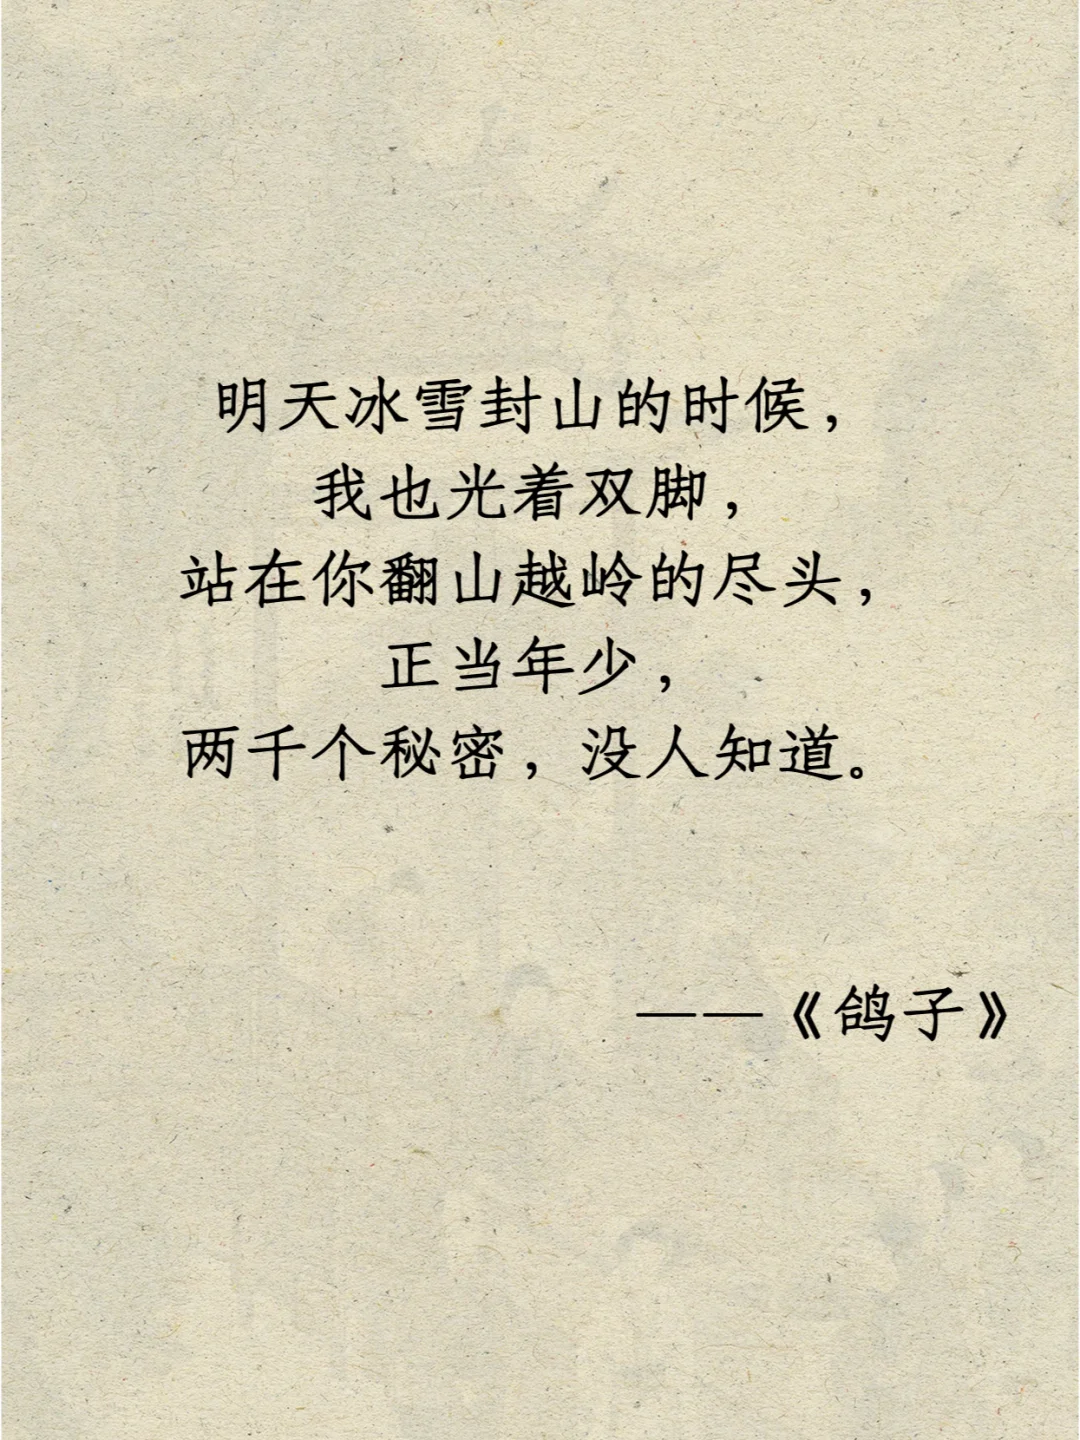 明天冰雪封山的时候，
我也光着双脚，
站在你翻山越岭的尽头，
正当年少，
两千个秘密，没人知道。
——《鸽子》